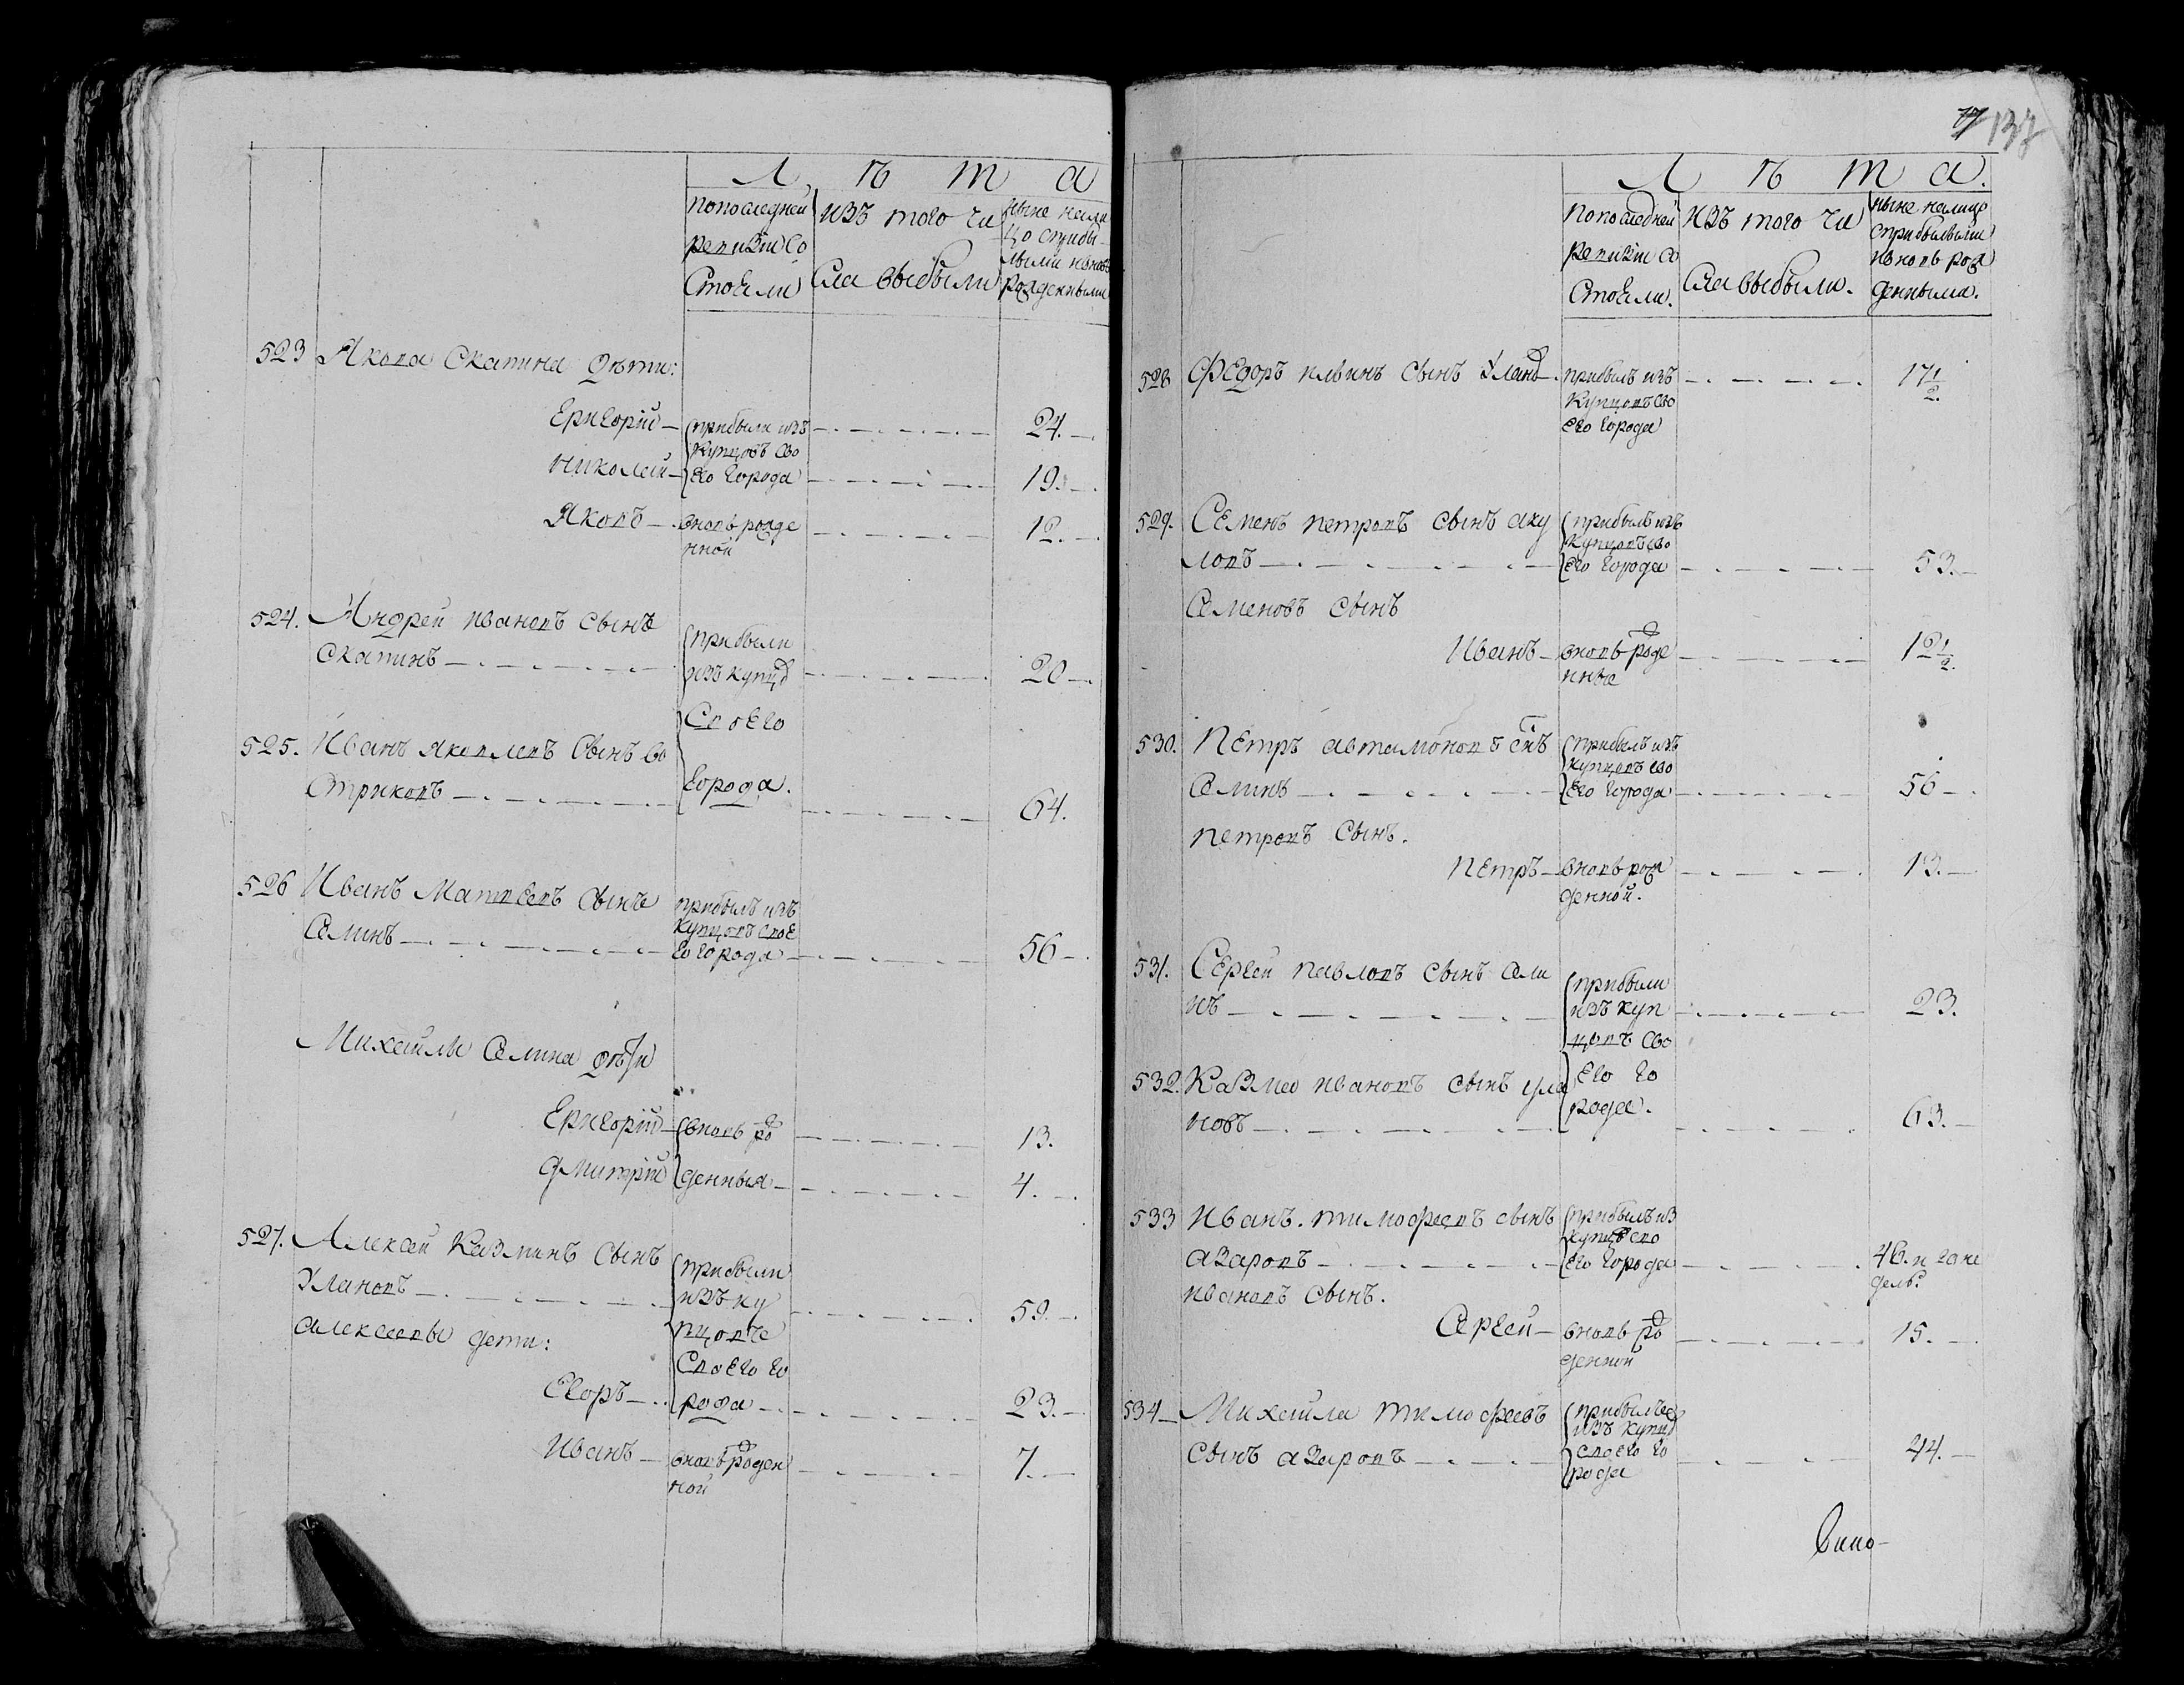 Л ѣ т а
попоследней
ревизiи со
стояли
изъ того чи
сла выбыли
ныне нали
цо сприбы
лыми ивновь
рожденными
523 Якова Скапина дѣти:
Григорiй — прибыли изъ
купцовъ сво
его города
24.
Николай — 19.
Яковъ — вновь рожде
нной
12.
524. Андрей ивановъ сынъ
Скапинъ — 20
прибыли
изъ купцов
своего
города.
525. Иванъ яковлевъ сынъ во
стриковъ — 64.
526 Иванъ Матвеевъ сынъ
Селинъ — 56
прибылъ изъ
купцовъ свое
го города
Михайлы Селина дѣти
Григорiй — вновь рож
13.
Дмитрiй денныя — 4.
527. Алексей Казминъ сынъ
Улановъ — 59.
прибыли
изъ ку
пцовъ
своего го
рода
алексеевы дети:
Егоръ — 23.
Иванъ — вновь рожден
ной
7.
137
Л ѣ т а.
попоследней
ревизiи со
стояли.
изъ того чи
сла выбыли.
ныне налицо
сприбылыми
ивновь рож
денными.
528 Федоръ ильинъ сынъ Уланов
прибылъ изъ
купцовъ сво
его города
17 1/2.
529. Семенъ петровъ сынъ аку
ловъ — 53.
прибылъ изъ
купцовъ сво
его города
Семеновъ сынъ
Иванъ — вновь рожде
нные
12 1/2.
530. Петръ автамоновъ снъ
Селинъ — 56
прибылъ изъ
купцовъ сво
его города
петровъ сынъ.
Петръ — вновь рож
денной.
13.
531. Сергей павловъ сынъ сели
нъ — 23.
прибыли
изъ куп
цовъ сво
его го
рода.
532. Казма ивановъ сынъ ула
новъ — 63.
533 Иванъ тимофеевъ сынъ
азаровъ —
прибылъ из
купцов сво
его города
46. и 2 две
дель
ивановъ сынъ.
Сергей — вновь рож
денной
15.
534 — Михайла тимофеевъ
сынъ азаровъ — 44.
прибылъ
изъ купцов
своего го
рода